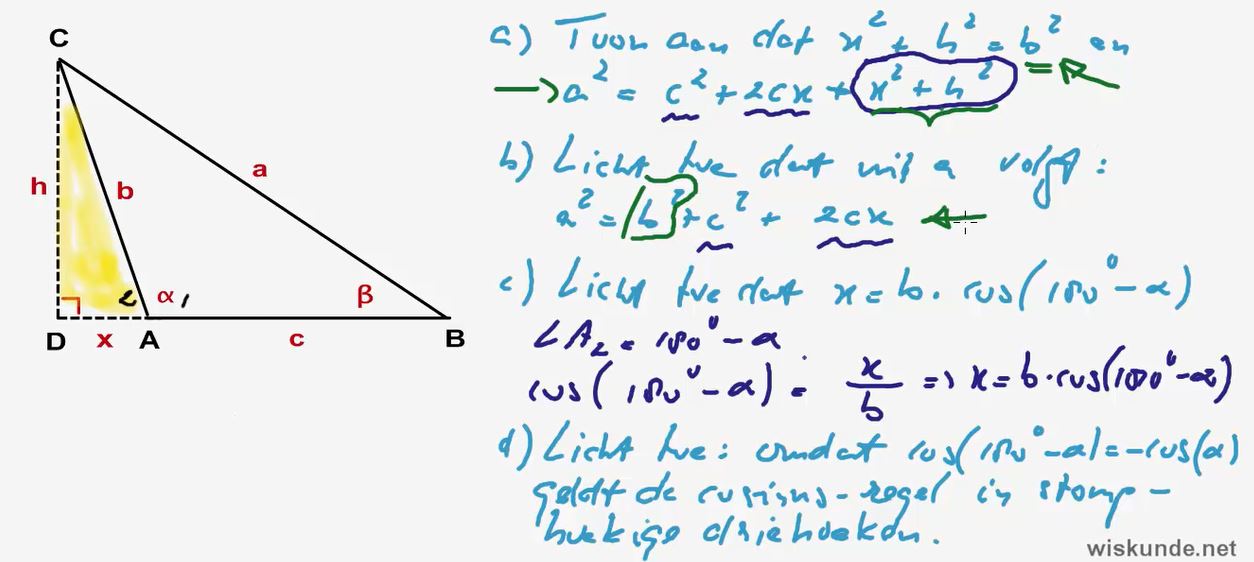 C
h
b
a
2
α
1
β
D
x
A
c
B
a) Toon aan dat x² + h² = b² en
→ a² = c² + 2cx + x² + h² = ←
b) Licht toe dat uit a volgt:
a² = b² + c² + 2cx ←
c) Licht toe dat x = b · cos(180° - α)
∠A₂ = 180° - α
cos(180° - α) = x/b ⇒ x = b · cos(180° - α)
d) Licht toe: omdat cos(180° - α) = -cos(α)
geldt de cosinus-regel in stomp-
hoekige driehoeken.
wiskunde.net